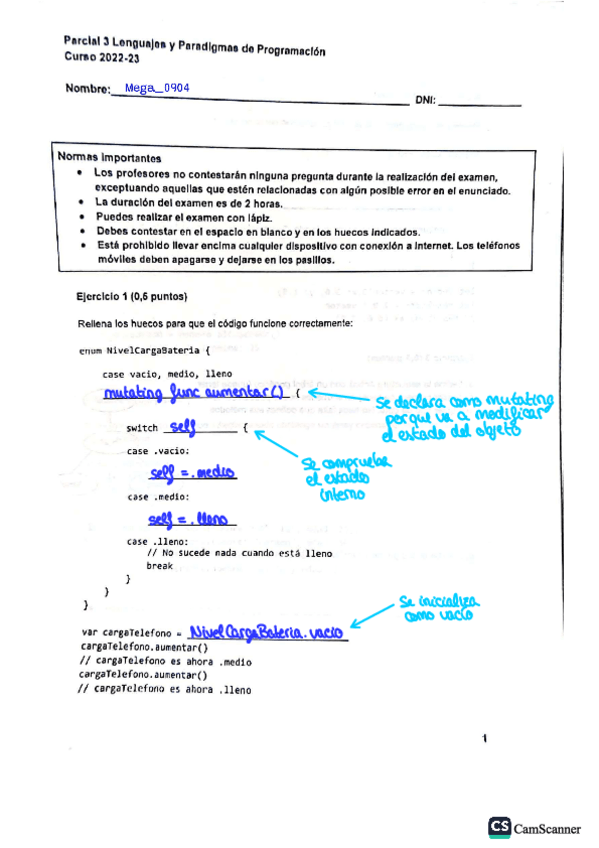 Parcial 3 Lenguajes y Paradigmas de Programación
Curso 2022-23
Nombre: Mega_0904
DNI:
Normas importantes
• Los profesores no contestarán ninguna pregunta durante la realización del examen,
exceptuando aquellas que estén relacionadas con algún posible error en el enunciado.
• La duración del examen es de 2 horas.
• Puedes realizar el examen con lápiz.
• Debes contestar en el espacio en blanco y en los huecos indicados.
• Está prohibido llevar encima cualquier dispositivo con conexión a Internet. Los teléfonos
móviles deben apagarse y dejarse en los pasillos.
Ejercicio 1 (0,5 puntos)
Rellena los huecos para que el código funcione correctamente:
enum NivelCargaBateria {
case vacio, medio, lleno
mutating func aumentar() {
Se declara como mutating
porque va a modificar
el estado del objeto
switch self {
case .vacio:
Se comprueba
el estado
interno
self = .medio
case .medio:
self = .lleno
case .lleno:
// No sucede nada cuando está lleno
break
}
}
}
Se inicializa
como vacío
var cargaTelefono = NivelCargaBateria.vacio
cargaTelefono.aumentar()
// cargaTelefono es ahora .medio
cargaTelefono.aumentar()
// cargaTelefono es ahora .lleno
1
CS CamScanner